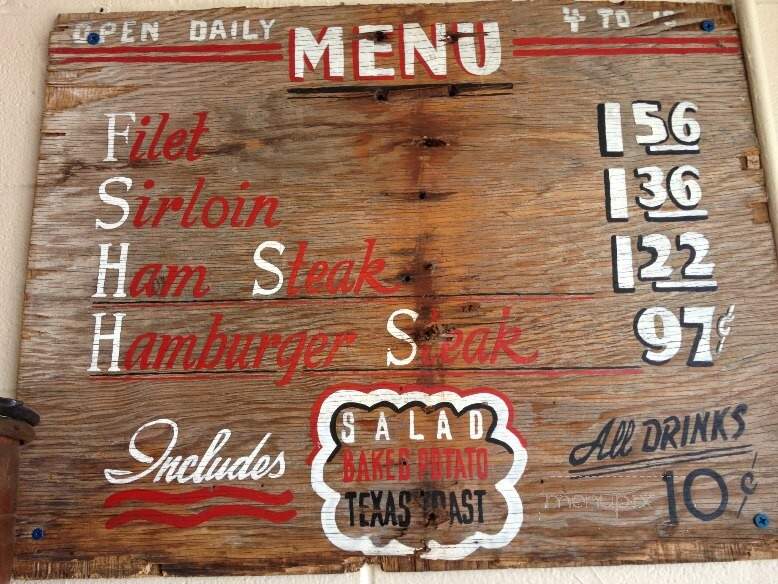 OPEN DAILY MENU 4 TO
Filet 1 56
Sirloin 1 36
Ham Steak 1 22
Hamburger Steak 97¢
Includes
SALAD
BAKED POTATO
TEXAS TOAST
All DRINKS
10¢
menupix